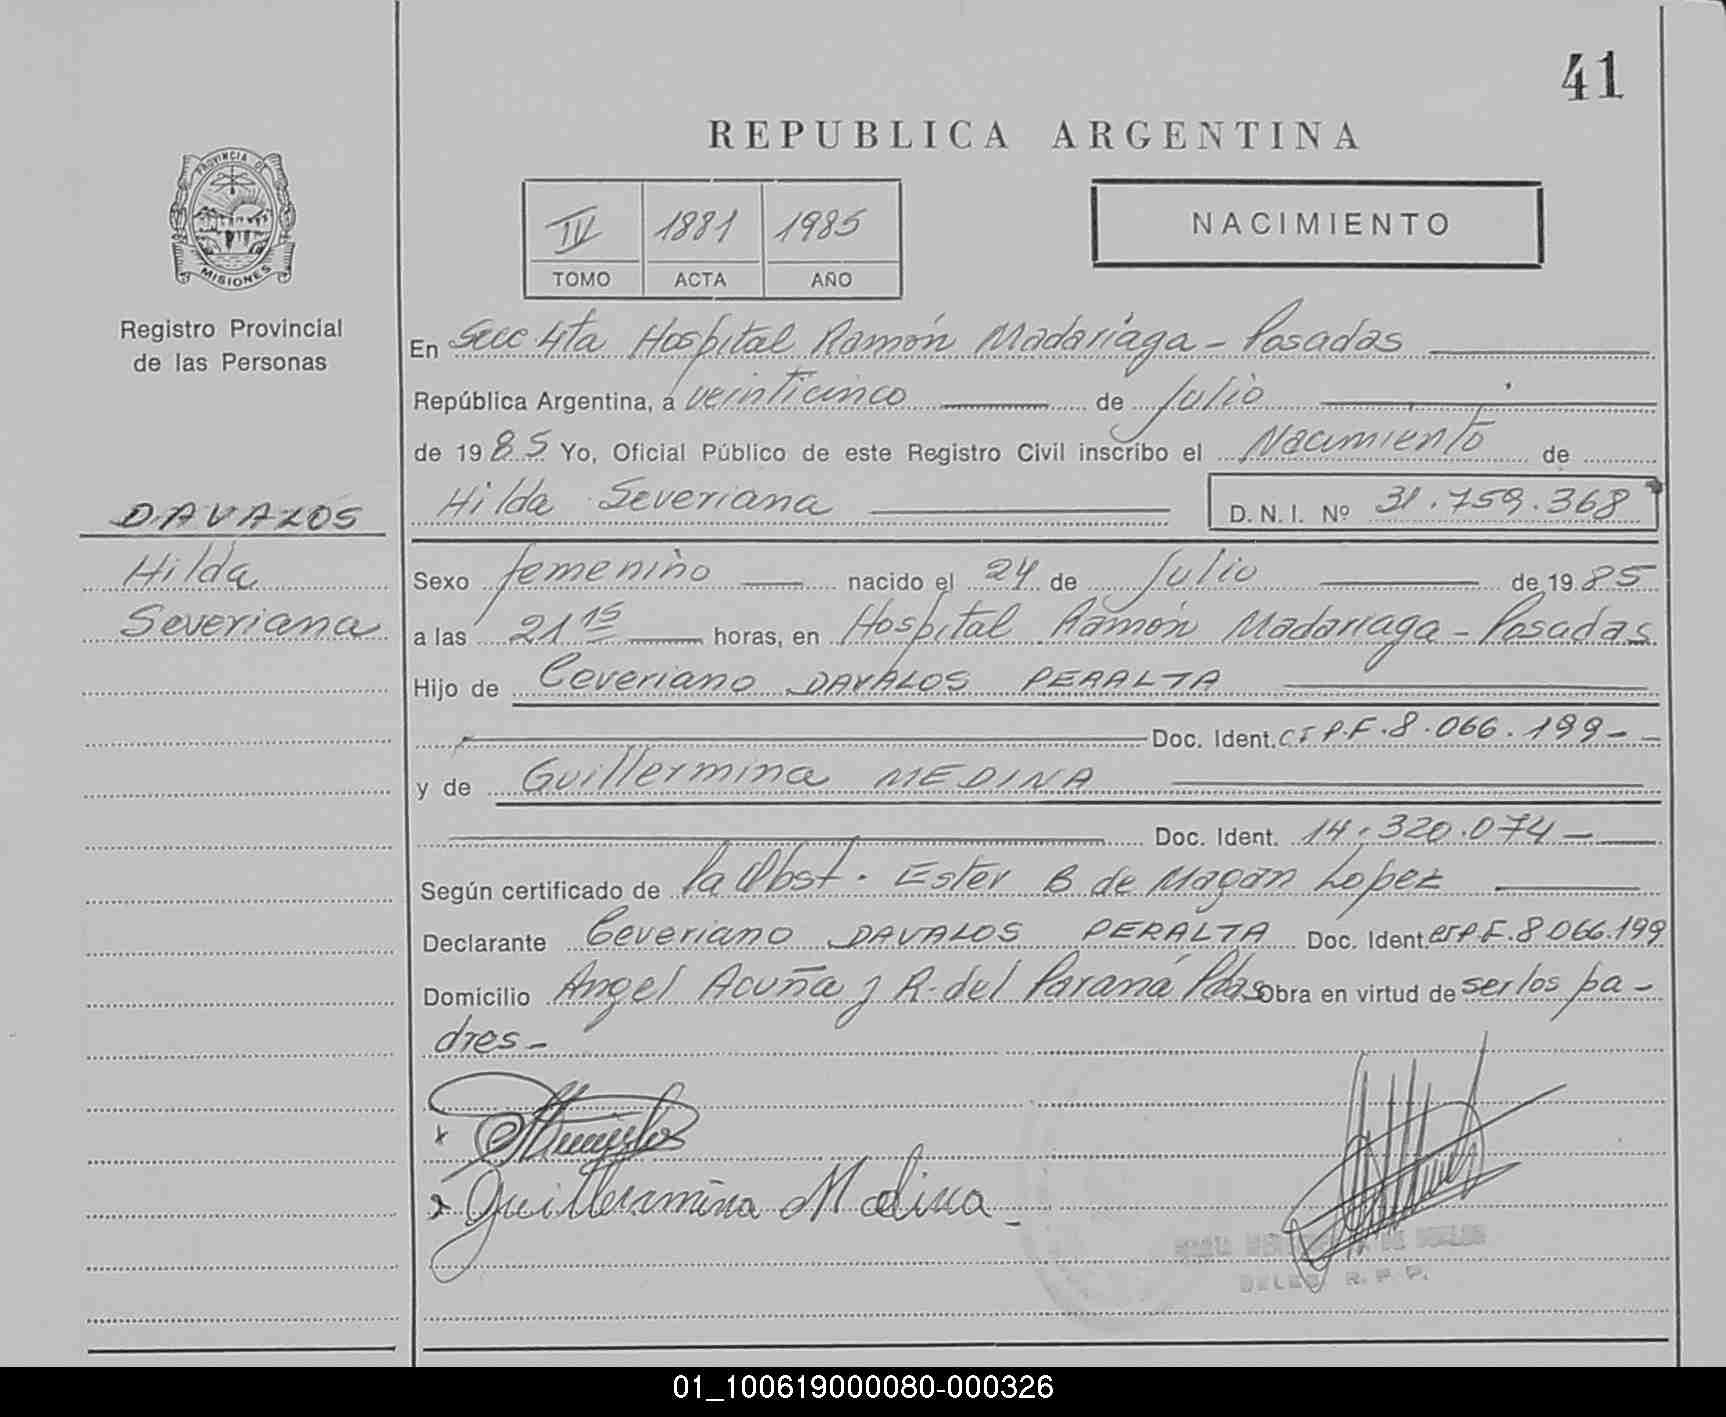 41
REPUBLICA ARGENTINA
PROVINCIA DE
MISIONES
Registro Provincial
de las Personas
IV 1881 1985
TOMO ACTA AÑO
NACIMIENTO
En Secc 4ta Hospital Ramón Madariaga - Posadas
República Argentina, a veinticinco de Julio
de 1985 Yo, Oficial Público de este Registro Civil inscribo el Nacimiento de
Hilda Severiana D.N.I. Nº 31.759.368
DAVALOS
Hilda
Severiana
Sexo femenino nacido el 24 de Julio de 1985
a las 21 15 horas, en Hospital Ramón Madariaga - Posadas
Hijo de Ceveriano DAVALOS PERALTA
Doc. Ident. C I P.F. 8.066.199-
y de Guillermina MEDINA
Doc. Ident. 14.320.074-
Según certificado de la Obst. Ester B de Magan Lopez
Declarante Ceveriano DAVALOS PERALTA Doc. Ident CI P.F. 8.066.199
Domicilio Angel Acuña y R. del Paraná Pdas Obra en virtud de ser los pa-
dres-
x
x Guillermina Medina -
R. P. P.
01_100619000080-000326